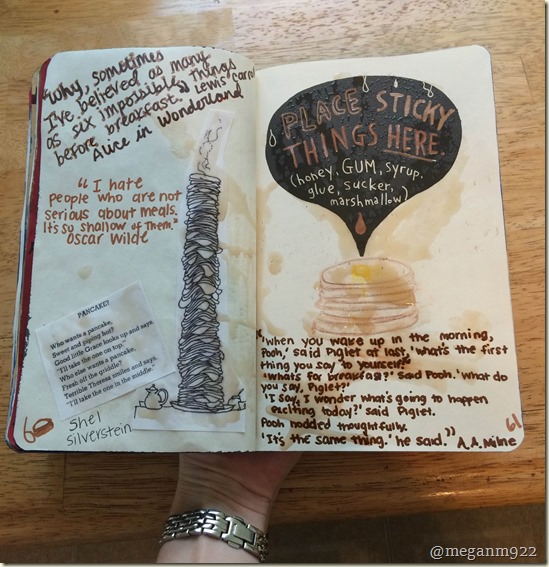 "Why, sometimes
I've believed as many
as six impossible things
before breakfast." Lewis Carrol
Alice in Wonderland
"I hate
people who are not
serious about meals.
It's so shallow of Them."
Oscar Wilde
PANCAKE?
Who wants a pancake,
Sweet and piping hot?
Good little Grace looks up and says,
"I'll take the one on top."
Who else wants a pancake,
Fresh off the griddle?
Terrible Theresa smiles and says,
"I'll take the one in the middle."
Shel
Silverstein
60
PLACE STICKY
THINGS HERE
(honey, GUM, syrup,
glue, sucker,
marshmallow)
"'When you wake up in the morning,
Pooh,' said Piglet at last, 'what's the first
thing you say to yourself?'
'What's for breakfast?' said Pooh. 'What do
you say, Piglet?'
'I say, I wonder what's going to happen
exciting today?' said Piglet.
Pooh nodded thoughtfully.
'It's the same thing.' he said." A.A. Milne
61
@meganm922